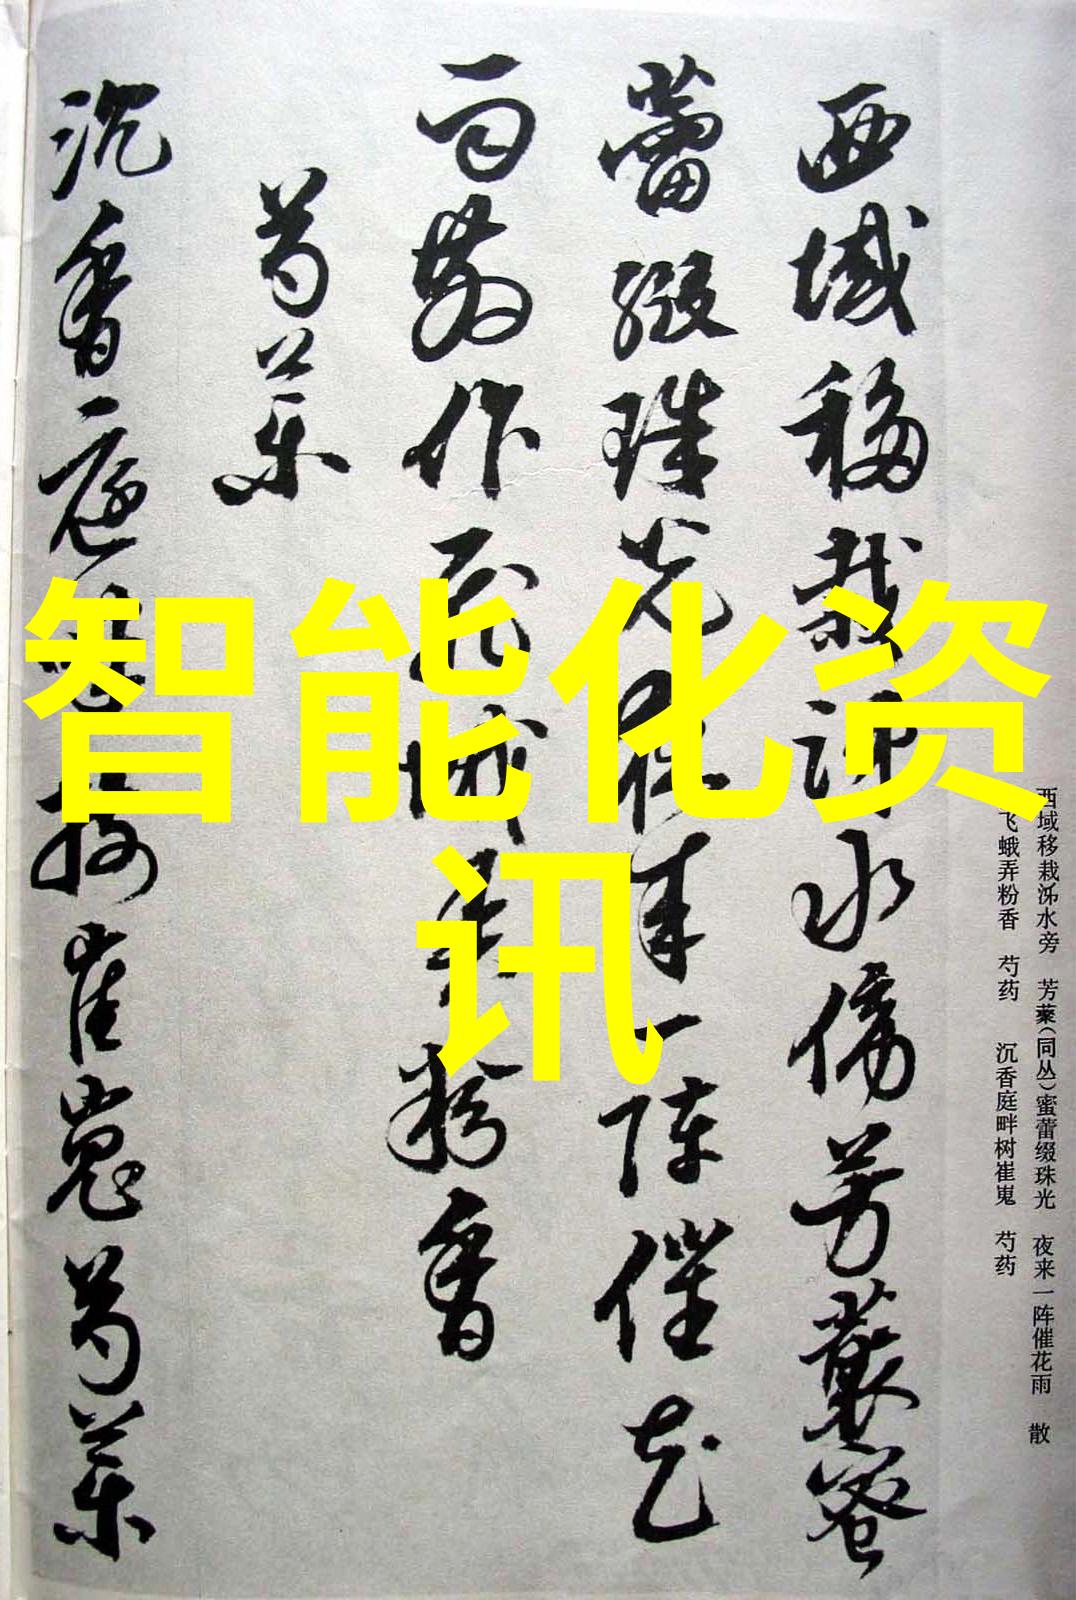 西域移栽泺水傍芳藂蜜
蕾缀珠光夜来一阵催花
雨散作飞蛾弄粉香
芍药
沉香庭畔树崔嵬芍药
西域移栽泺水旁 芳藂(同丛)蜜蕾缀珠光 夜来一阵催花雨 散
飞蛾弄粉香 芍药 沉香庭畔树崔嵬 芍药
智能化资
讯